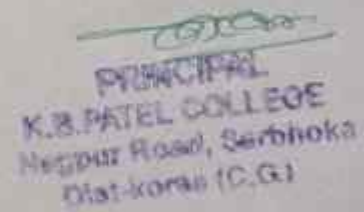 PRINCIPAL
K.B.PATEL COLLEGE
Road, Serbhoka
Dist-korea (C.G.)